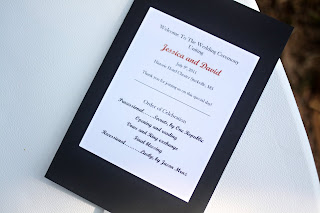 Welcome To The Wedding Ceremony
Uniting
Jessica and David
July 9, 2011
Historic Hotel Chester Starkville, MS
Thank you for joining us on this special day!
Order of Celebration
Processional.......Secrets, by One Republic
Opening and reading
Vows and Ring exchange
Sand Blessing
Recessional.........Lucky, by Jason Mraz